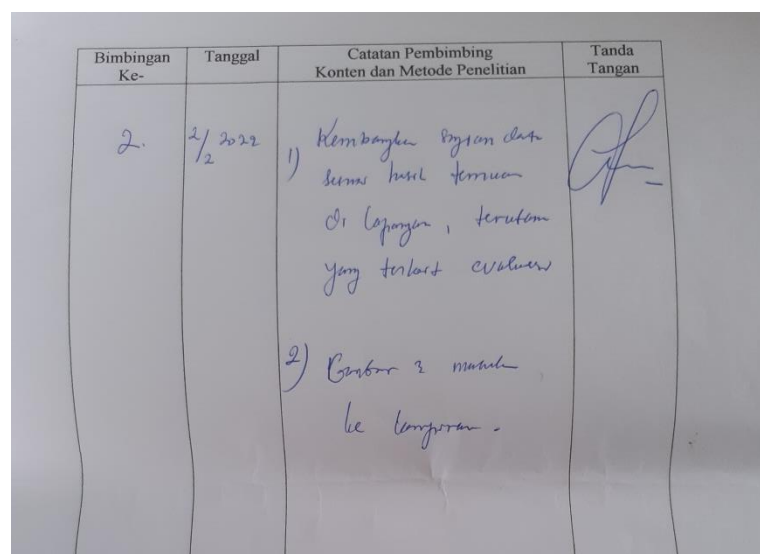 Bimbingan Ke-
Tanggal
Catatan Pembimbing
Konten dan Metode Penelitian
Tanda Tangan
2.
2/2 2022
1) Kembangkan sajian data
sesuai hasil temuan
di lapangan, terutama
yang terkait evaluasi
2) Gambar 2 masuk
ke lampiran.